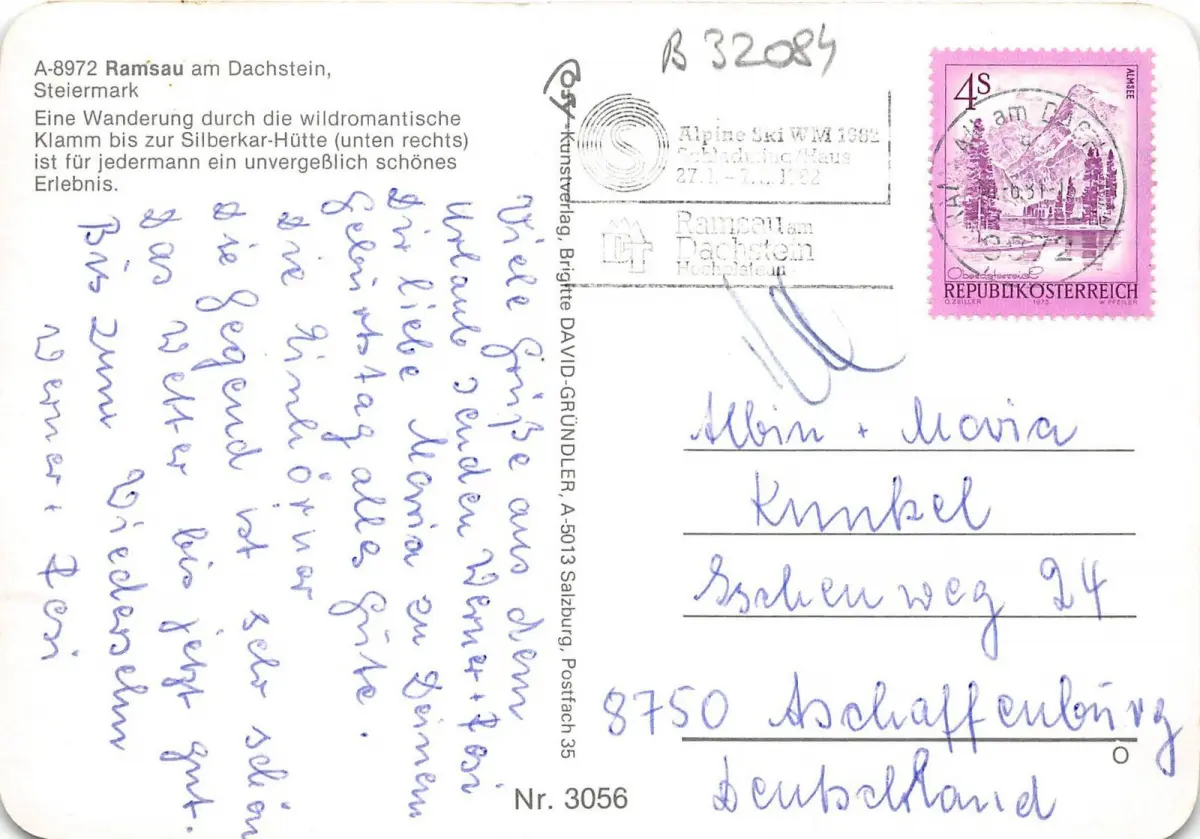 A-8972 Ramsau am Dachstein,
Steiermark
Eine Wanderung durch die wildromantische
Klamm bis zur Silberkar-Hütte (unten rechts)
ist für jedermann ein unvergeßlich schönes
Erlebnis.
Viele Grüße aus dem
Urlaub senden Werner + Rosi
Dir liebe Maria zu Deinem
Geburtstag alles Gute.
Die
die Gegend ist sehr schön
das Wetter bis jetzt gut.
Bis zum Wiedersehn
Werner + Rosi
Cosy-Kunstverlag, Brigitte DAVID-GRÜNDLER, A-5013 Salzburg, Postfach 35
Nr. 3056
B 32084
Alpine Ski WM 1982
Schladming/Haus
Ramsau am
Dachstein
4S
ALMSEE
am
8972
Oberösterreich
REPUBLIK ÖSTERREICH
O.ZEILLER 1973 W.PFEILER
Albin + Maria
Kunkel
Eschenweg 24
8750 Aschaffenburg
O
Deutschland